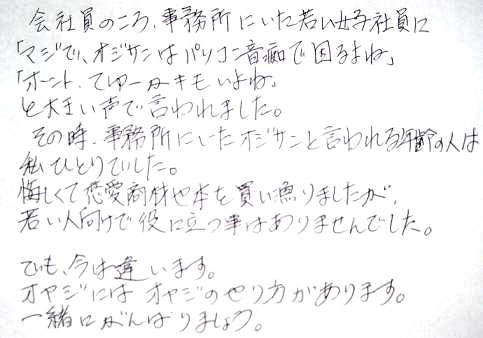 会社員のころ、事務所にいた若い女子社員に
「マジで、オジサンはパソコン音痴で困るよね」
「ホント、てゆーかキモいよね」
と大きい声で言われました。
その時、事務所にいたオジサンと言われる年齢の人は
私ひとりでした。
悔しくて恋愛商材や本を買い漁りましたが、
若い人向けで役に立つ事はありませんでした。
でも、今は違います。
オヤジにはオヤジのやり方があります。
一緒にがんばりましょう。